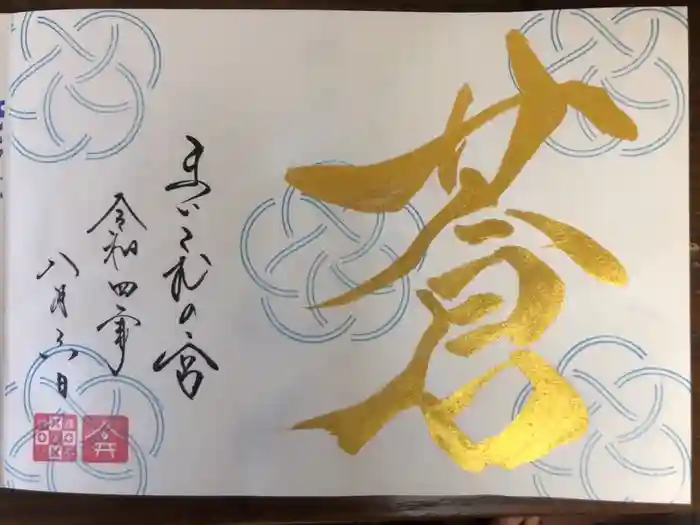 蒼
まいこむの宮
令和四年
八月六日